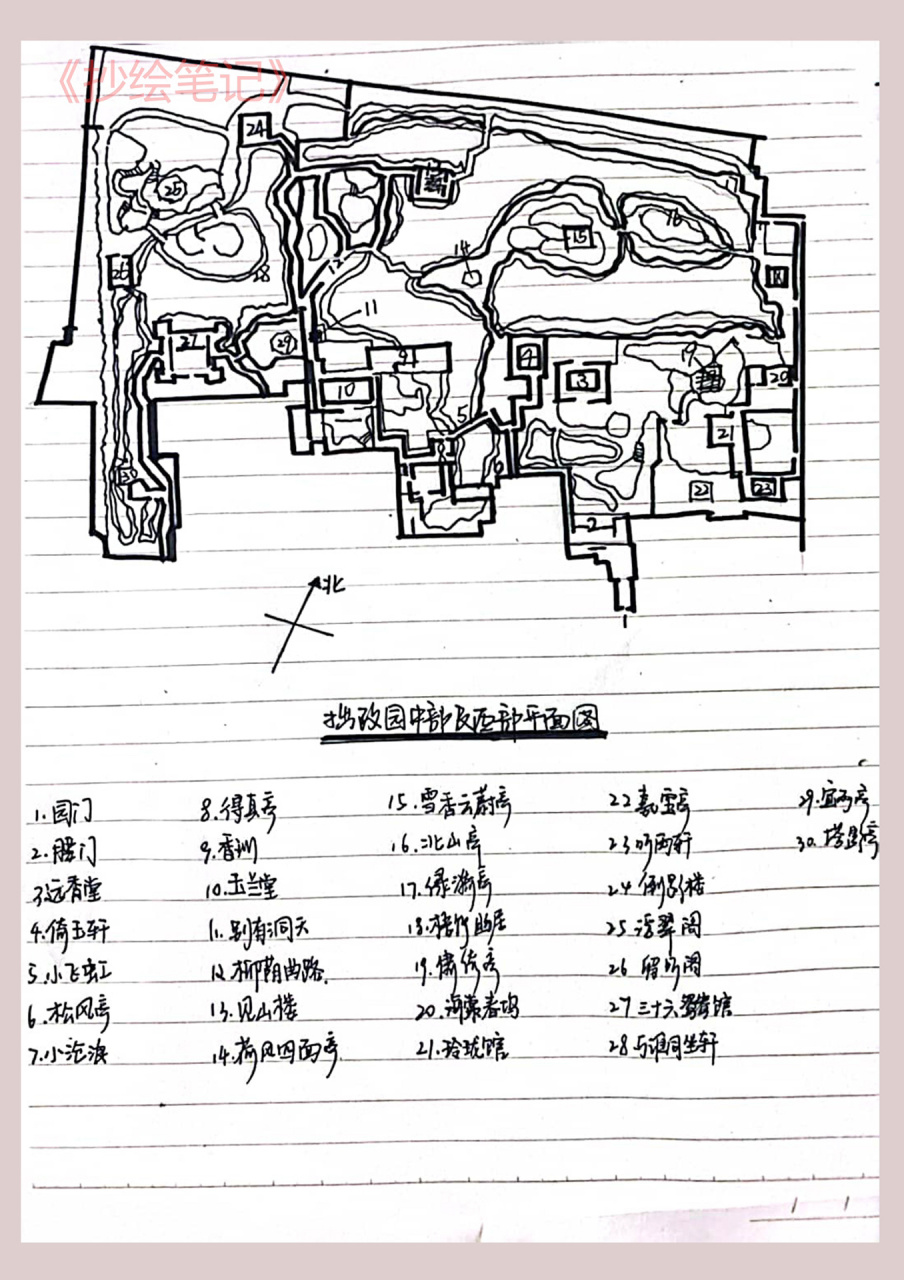 《抄绘笔记》
24
25
14
15
16
12
18
26
28
11
27
29
9
4
19
10
3
20
5
21
22
23
2
北
1
拙政园中部及西部平面图
1.园门
2.腰门
3.远香堂
4.倚玉轩
5.小飞虹
6.松风亭
7.小沧浪
8.得真亭
9.香洲
10.玉兰堂
11.别有洞天
12.柳荫曲路.
13.见山楼
14.荷风四面亭
15.雪香云蔚亭
16.北山亭
17.绿漪亭
18.梧竹幽居
19.绣绮亭
20.海棠春坞
21.玲珑馆
22嘉宝亭
23听雨轩
24倒影楼
25浮翠阁
26留听阁
27三十六鸳鸯馆
28与谁同坐轩
29.宜两亭
30.塔影亭